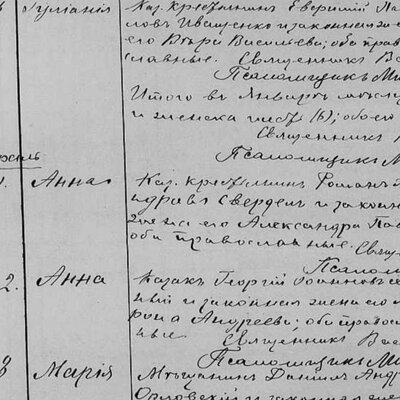 Іуліанія
Каз. крестьянинъ Евфимій Па
ловъ Иващенко и законная же
его Вѣра Васильева; оба прав
славные. Священникъ Ва
Псаломщикъ Ми
Итого въ Январѣ муж
и женска пола (6); обоего
Священникъ
Псаломщикъ М
1. Анна Каз. крестьянинъ Романъ
андровъ и закон
ная жена его Александра Па
оба православные. Свящ
Псалом
2. Анна Казакъ Георгій Іоанновъ
и законная жена его
Андреева; оба право
ные. Священникъ Вас
Псаломщикъ Ми
3 Марія Мѣщанинъ Даніилъ Андр
Орловскій и законная